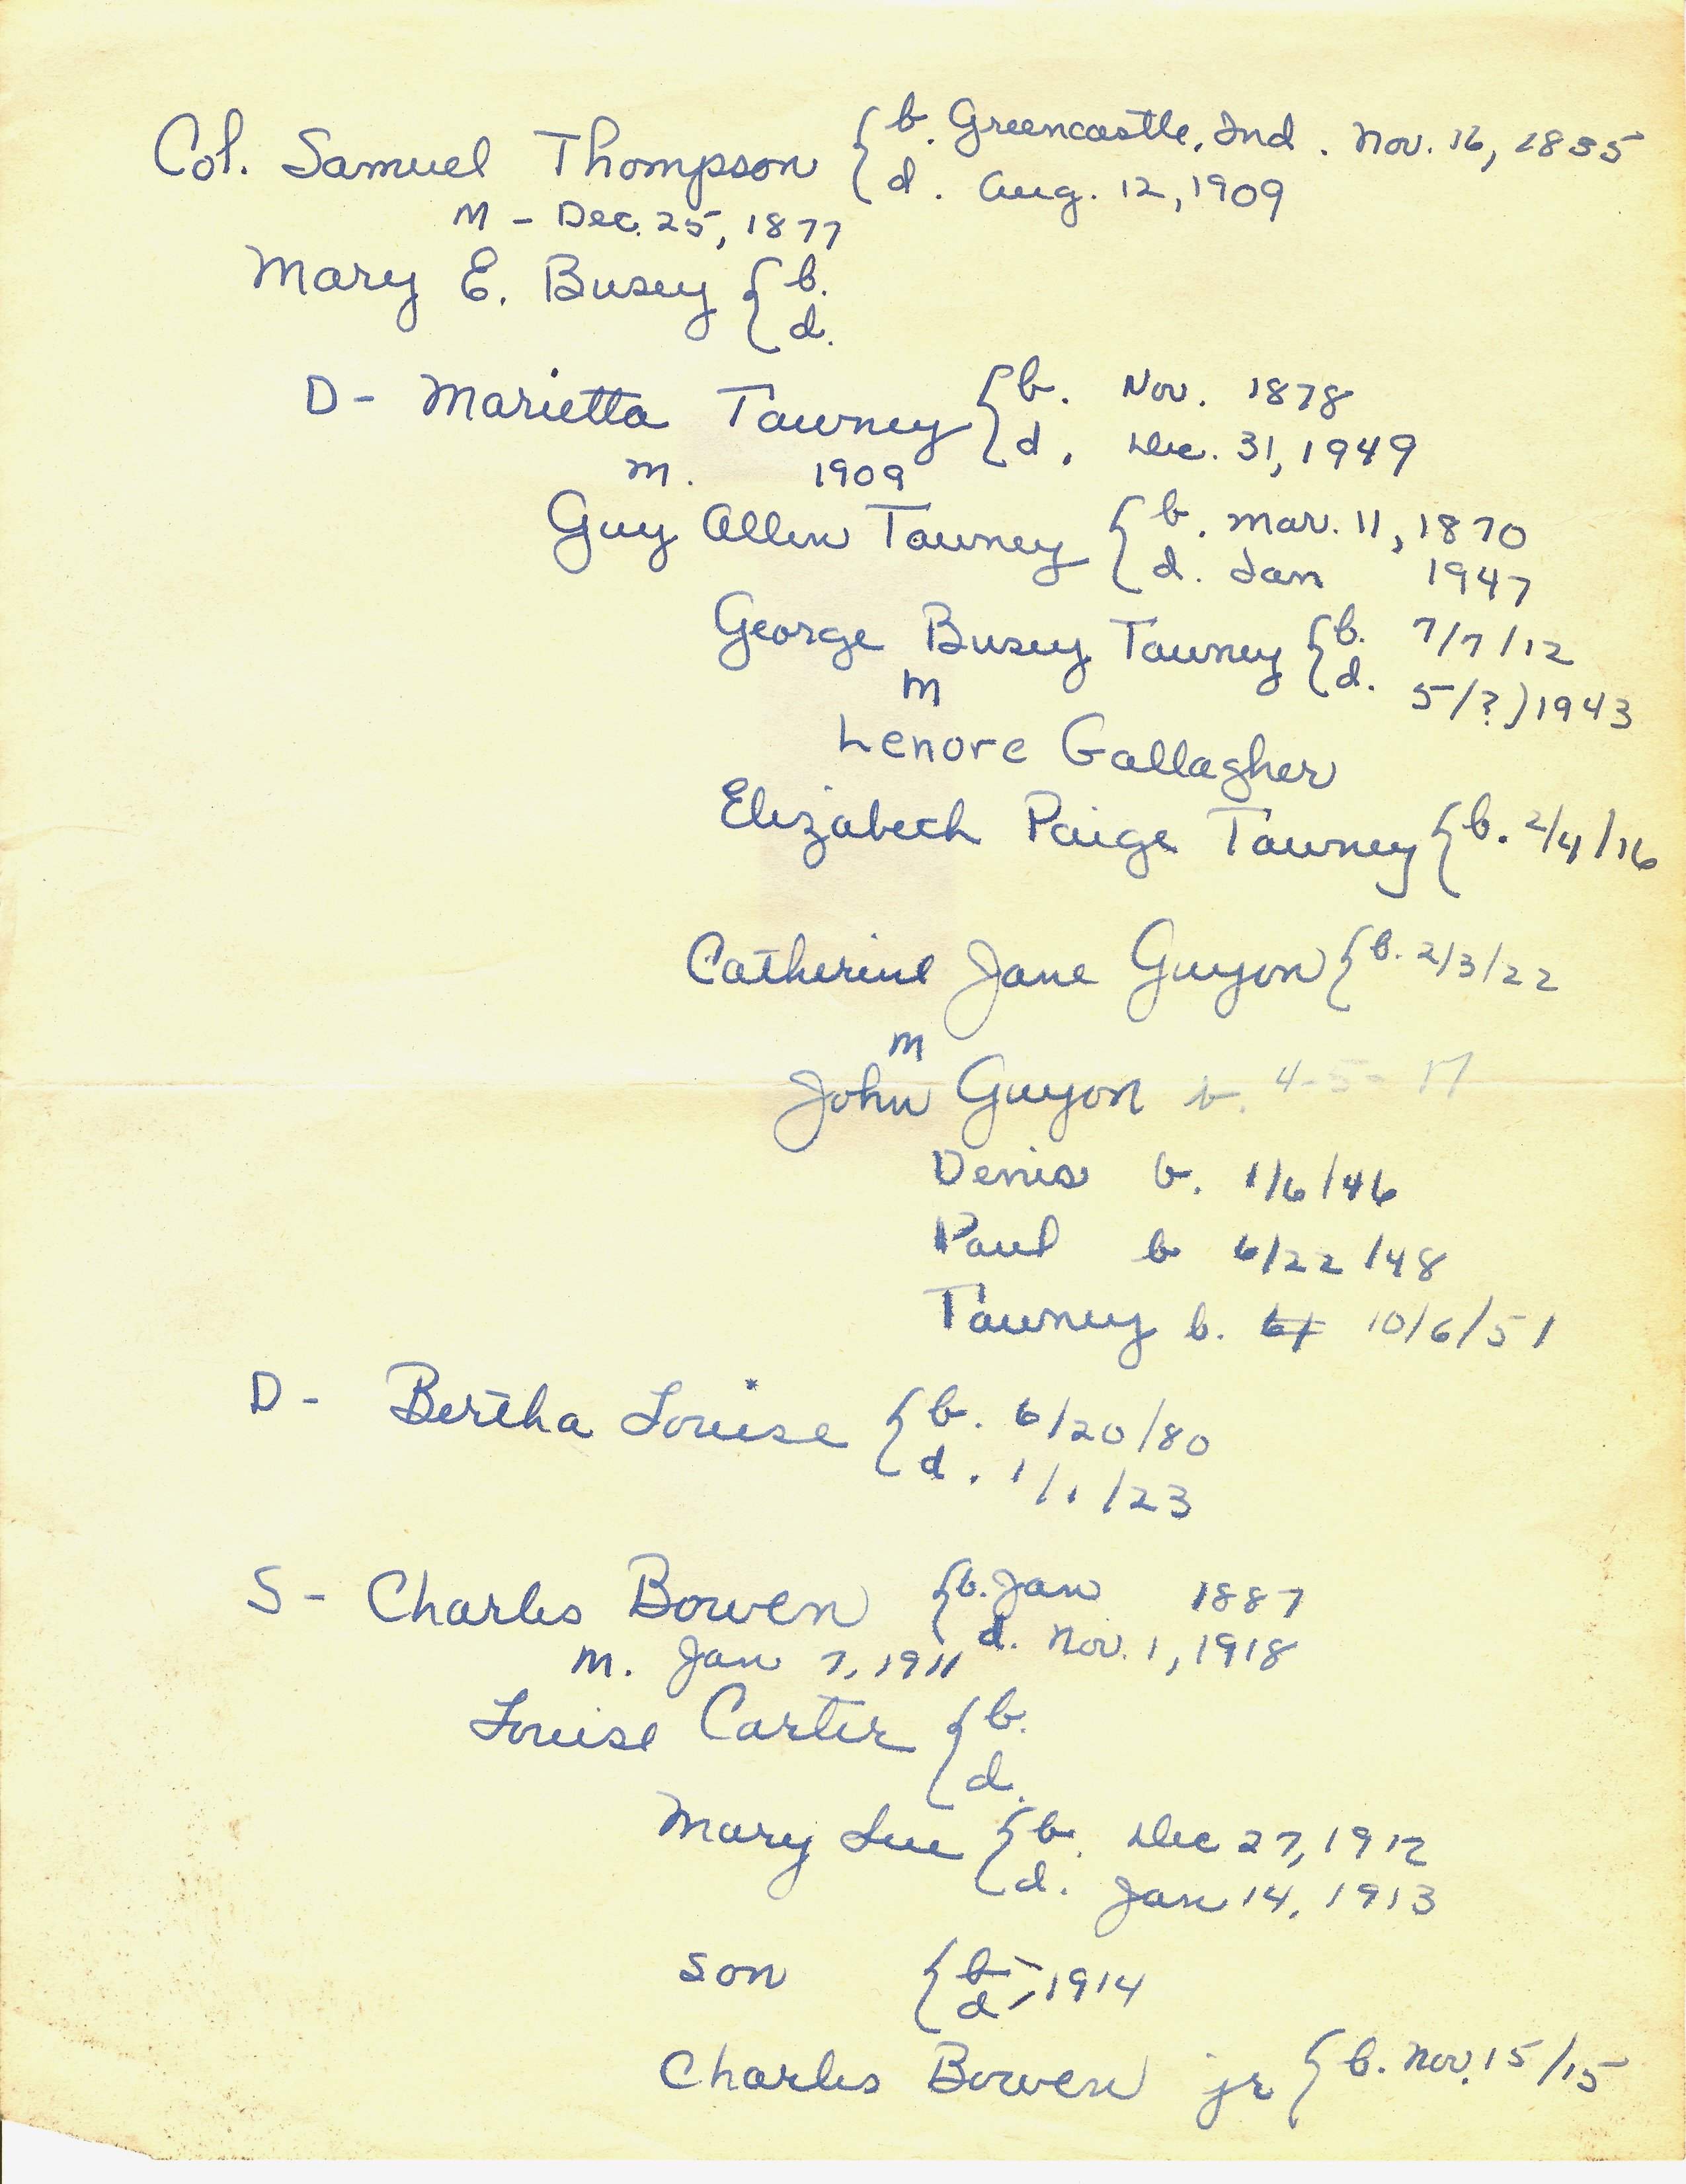 Col. Samuel Thompson { b. Greencastle, Ind. Nov. 16, 1835
d. Aug. 12, 1909
M - Dec. 25, 1877
Mary E. Busey { b.
d.
D - Marietta Tawney { b. Nov. 1878
d. Dec. 31, 1949
m. 1909
Guy Allen Tawney { b. Mar. 11, 1870
d. Jan 1947
George Busey Tawney { b. 7/7/12
d. 5/?) 1943
m
Lenore Gallagher
Elizabeth Paige Tawney { b. 2/4/16
Catherine Jane Guyon { b. 2/3/22
m
John Guyon b. 4-5-17
Denis b. 1/6/46
Paul b 6/22/48
Tawney b. 10/6/51
D - Bertha Louise { b. 6/20/80
d. 1/1/23
S - Charles Bowen { b. Jan 1887
d. Nov. 1, 1918
m. Jan 7, 1911
Louise Carter { b.
d.
Mary Sue { b. Dec 27, 1912
d. Jan 14, 1913
son { b - 1914
d
Charles Bowen jr { b. Nov. 15/15